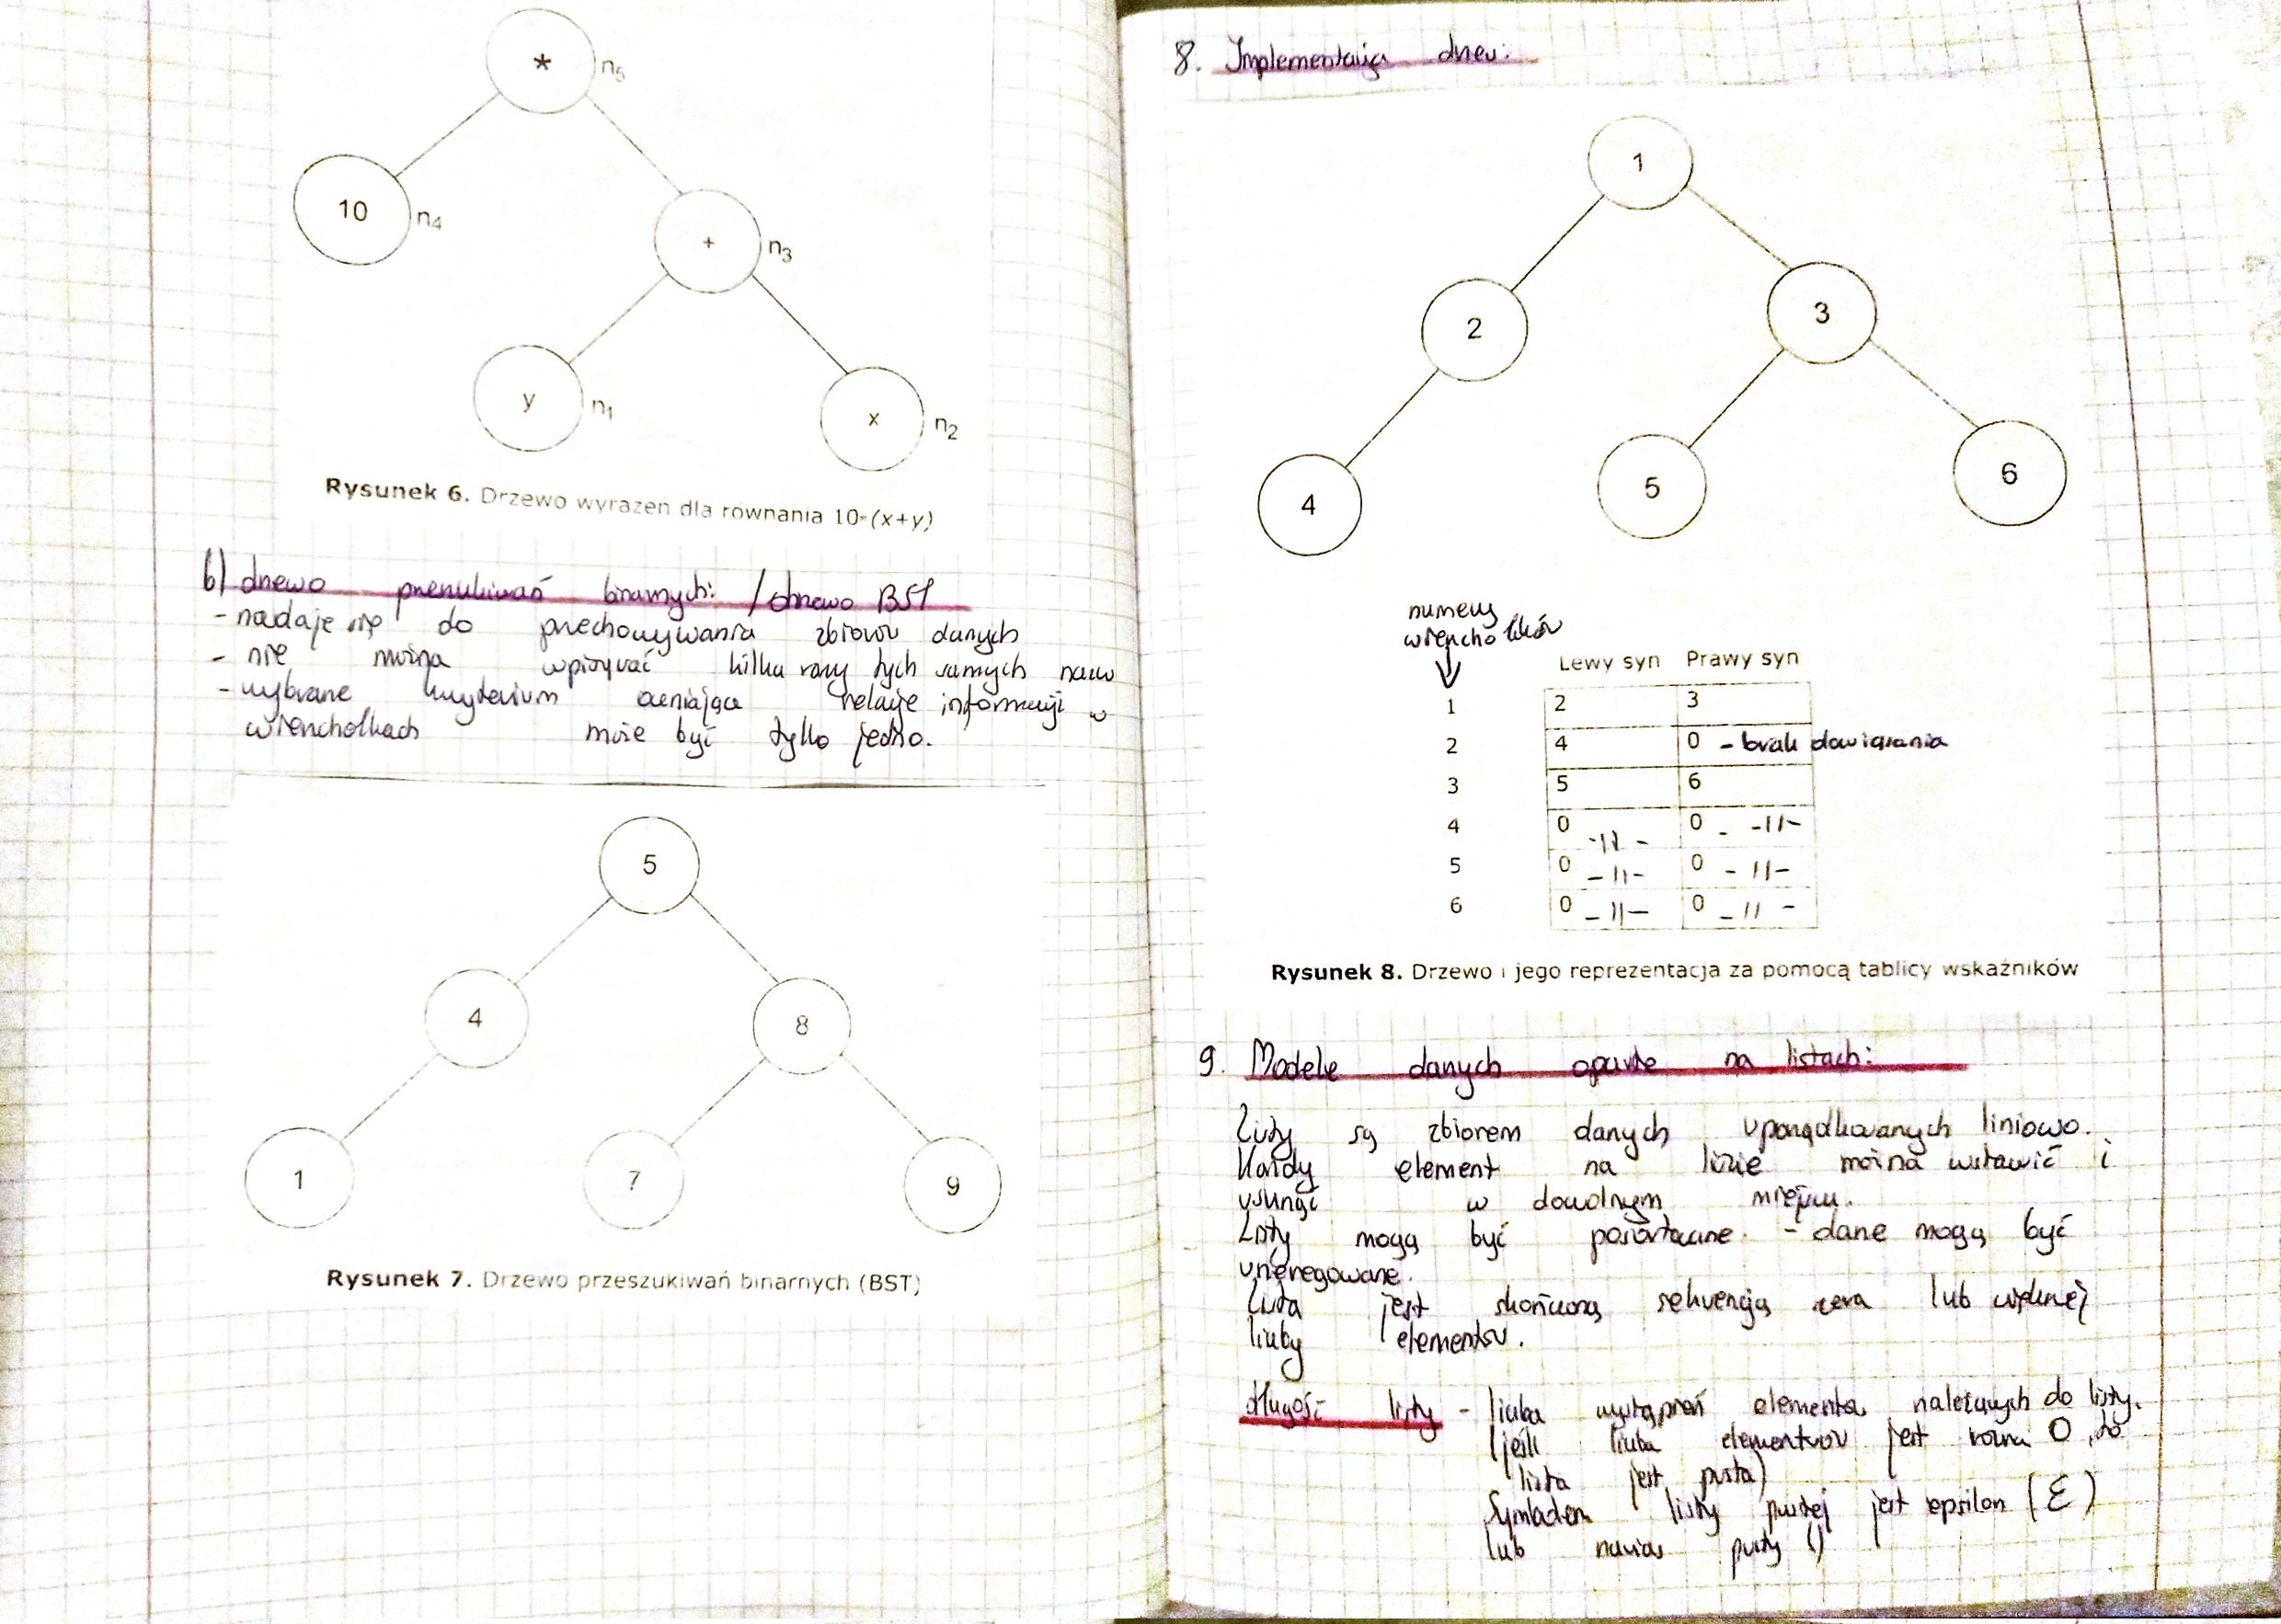 *
n5
10
n4
+
n3
y
n1
x
n2
Rysunek 6. Drzewo wyrazen dla rownania 10*(x+y)
b) drzewo przeszukiwań binarnych: / drzewo BST
- nadaje się do przechowywania zbiorów danych
- nie można wpisywać kilka razy tych samych nazw
- wybrane kryterium oceniające relacje informacji w
wierzchołkach może być tylko jedno.
5
4
8
1
7
9
Rysunek 7. Drzewo przeszukiwań binarnych (BST)
8. Implementacja drzew:
1
2
3
4
5
6
numery
wierzchołków
Lewy syn Prawy syn
1 2 3
2 4 0 - brak dowiązania
3 5 6
4 0 -11- 0 - -11-
5 0 -11- 0 -11-
6 0 -11- 0 -11-
Rysunek 8. Drzewo i jego reprezentacja za pomocą tablicy wskaźników
9. Modele danych oparte na listach:
Listy są zbiorem danych uporządkowanych liniowo.
Każdy element na liście można wstawić i
usunąć w dowolnym miejscu.
Listy mogą być posortowane - dane mogą być
uszeregowane.
Lista jest skończoną sekwencją zera lub większej
liczby elementów.
długość listy - liczba wystąpień elementów należących do listy.
(jeśli liczba elementów jest równa 0, to
lista jest pusta)
Symbolem listy pustej jest epsilon (ε)
lub nawias pusty ()